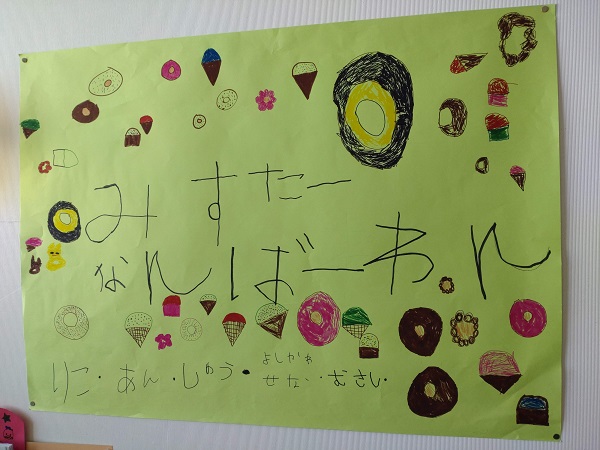 みすたー
なんばーわん
よしかわ
りこ・あん・しゅう・せな・むさし・